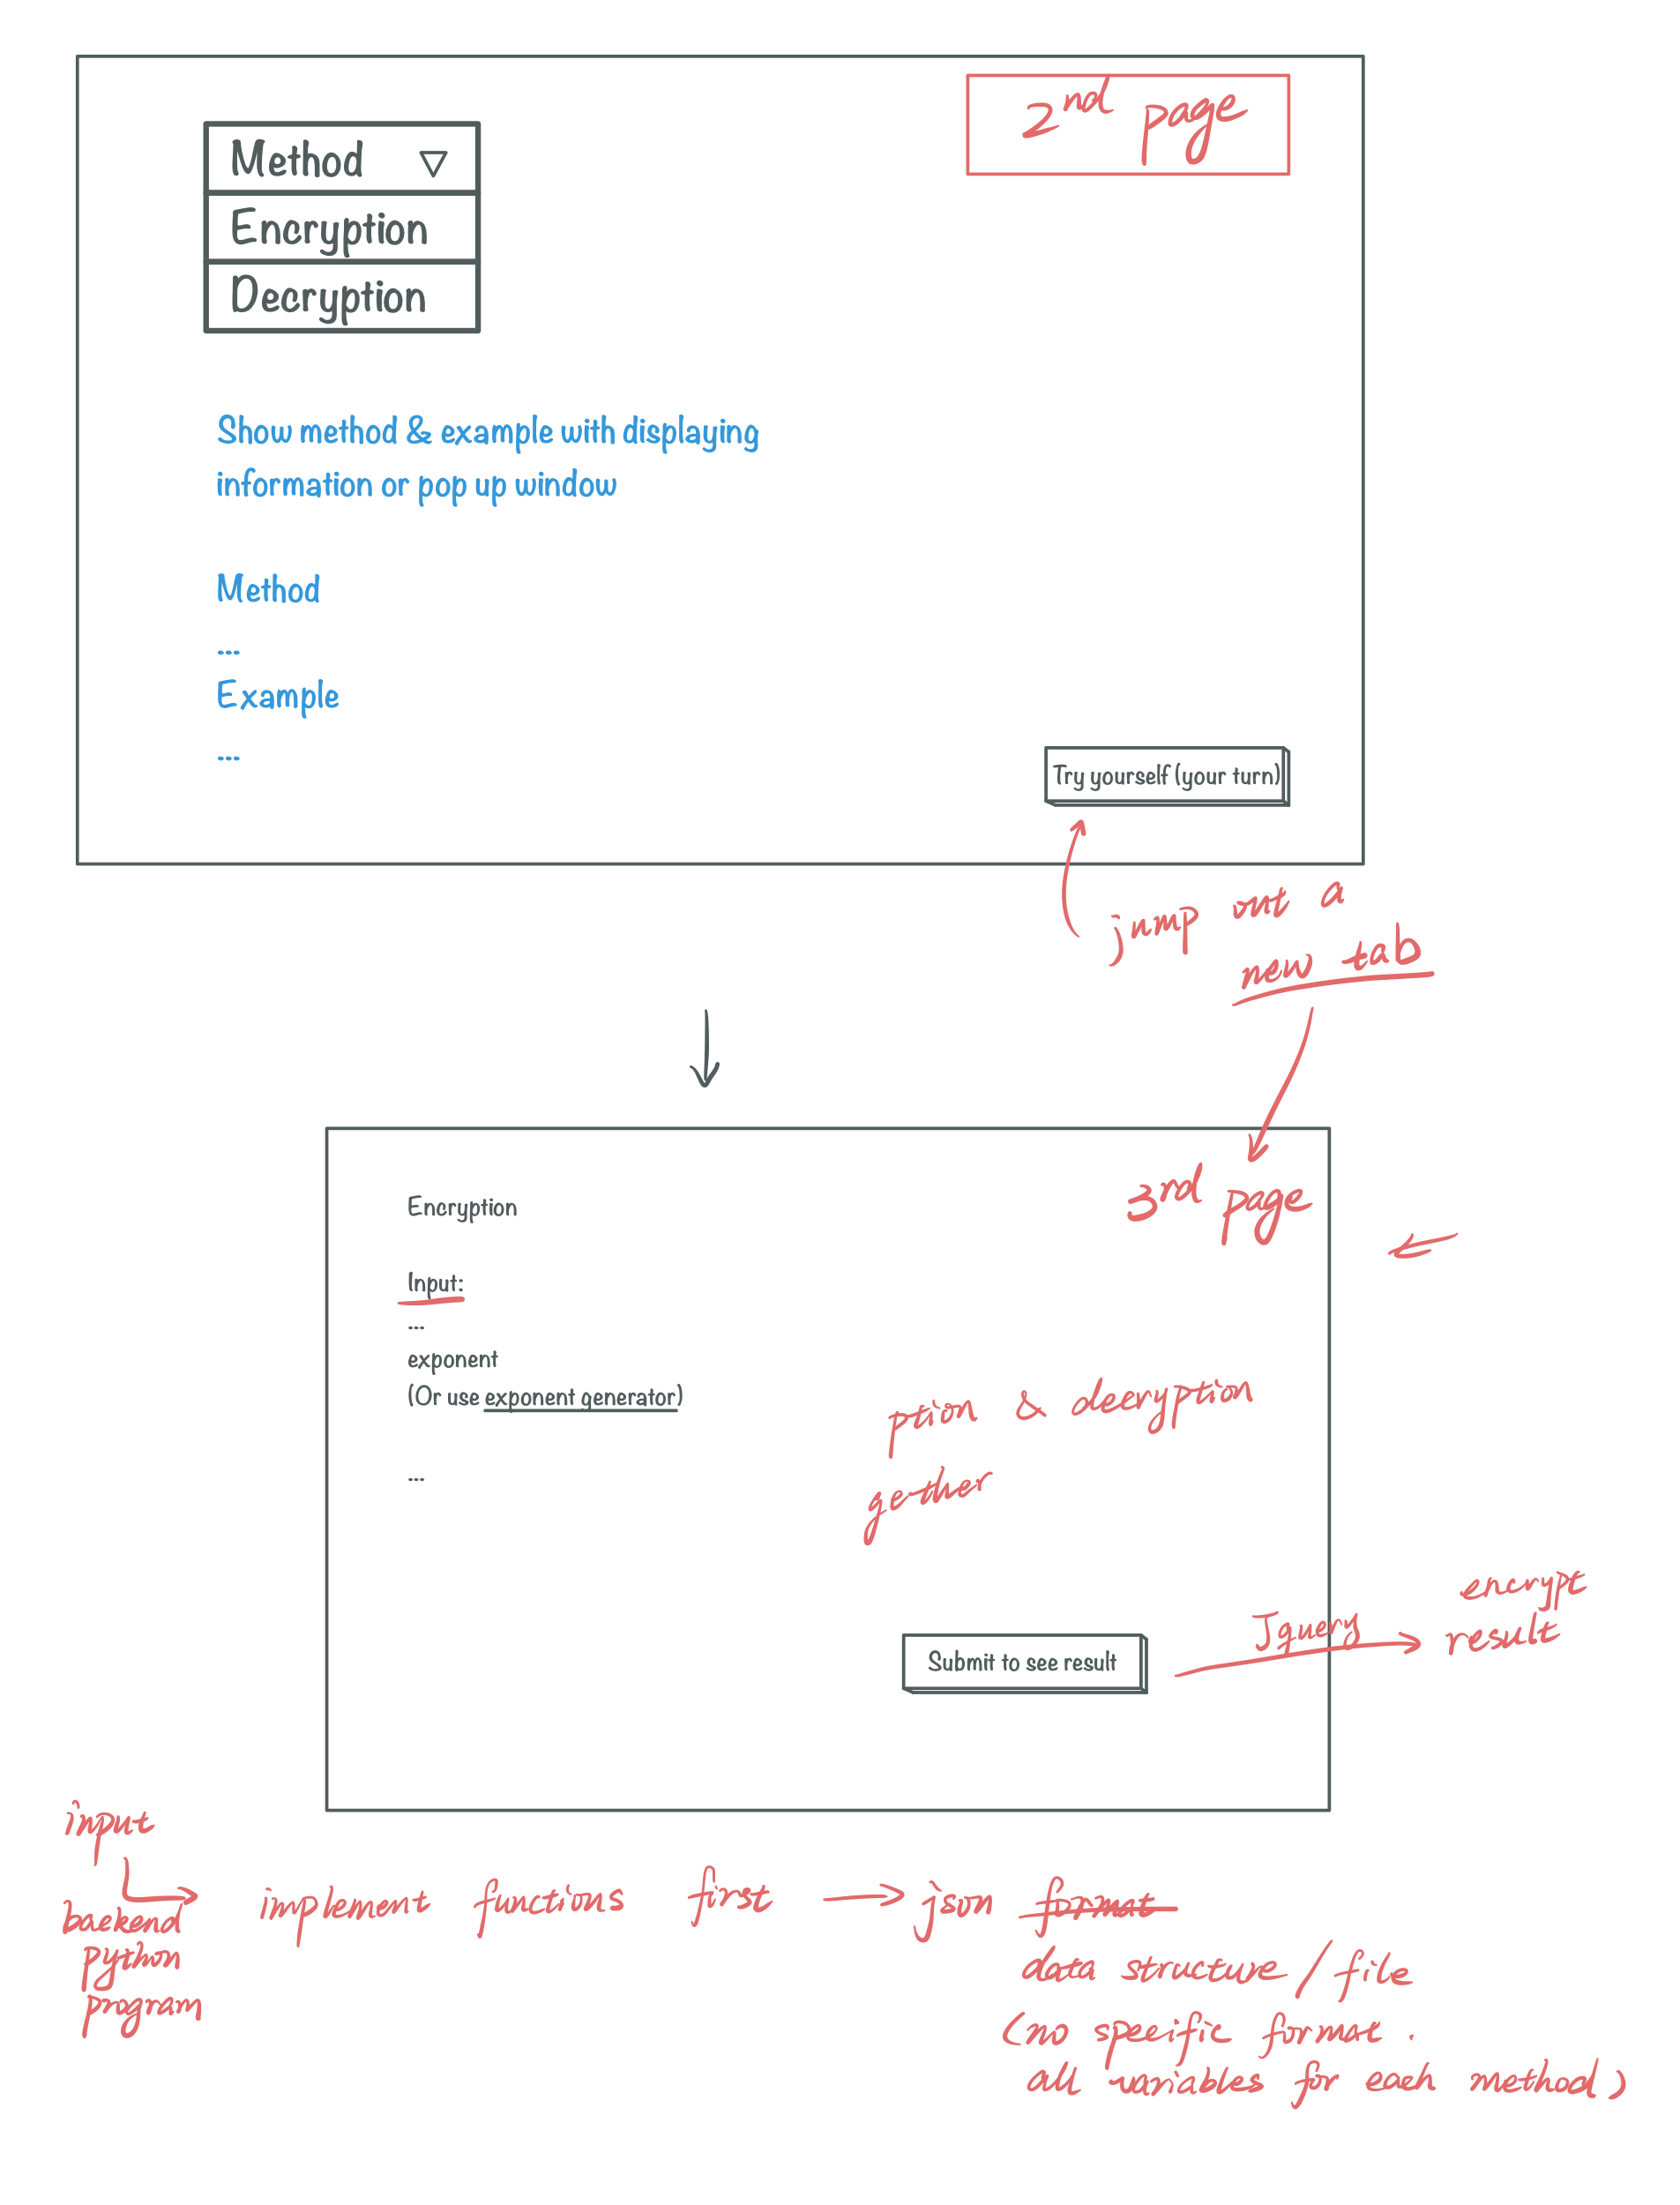 2nd page
Method
Encryption
Decryption
Show method & example with displaying
information or pop up window
Method
...
Example
...
Try yourself (your turn)
jump out a
new tab
3rd page
Encryption
Input:
...
exponent
(Or use exponent generator)
...
ption & decryption
gether
Submit to see result
Jquery
encrypt
result
input
backend
python
program
implement functions first
json format
data structure / file
(no specific format.
all variables for each method)